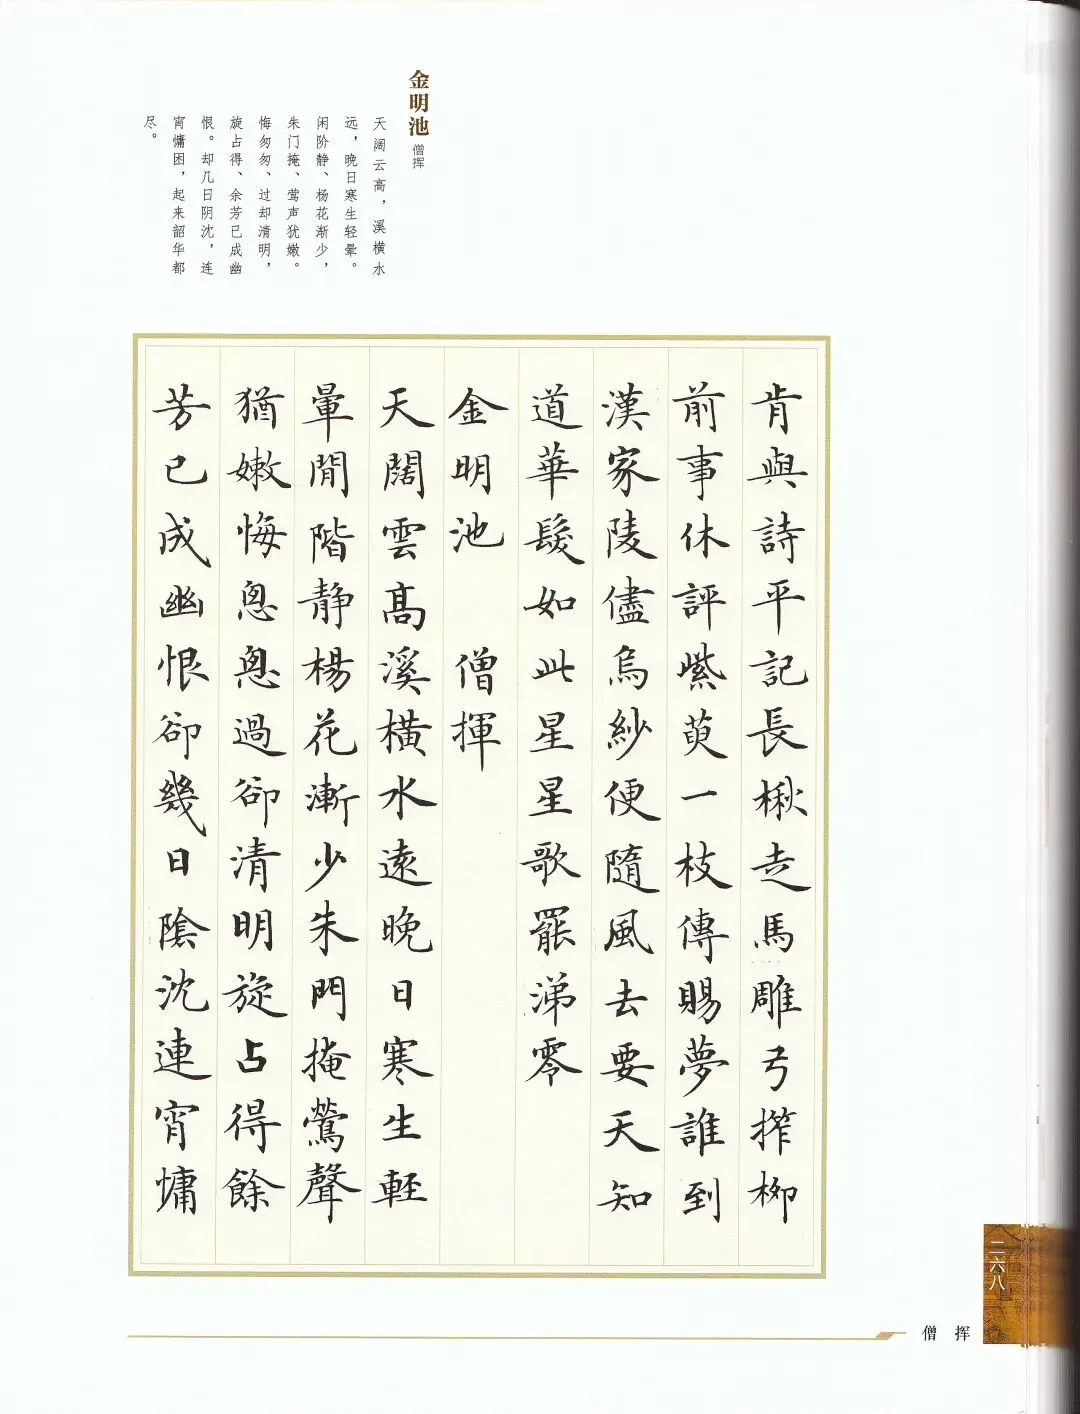 金明池 僧挥
天阔云高，溪横水
远，晚日寒生轻晕。
闲阶静、杨花渐少，
朱门掩、莺声犹嫩。
悔匆匆、过却清明，
旋占得、余芳已成幽
恨。却几日阴沈，连
宵慵困，起来韶华都
尽。
肯與詩平記長楸走馬雕弓搾柳
前事休評紫萸一枝傳賜夢誰到
漢家陵儘烏紗便隨風去要天知
道華髮如此星星歌罷涕零
金明池 僧揮
天闊雲高溪橫水遠晚日寒生輕
暈閒階静楊花漸少朱門掩鶯聲
猶嫩悔悤悤過卻清明旋占得餘
芳已成幽恨卻幾日陰沈連宵慵
二六八
僧挥